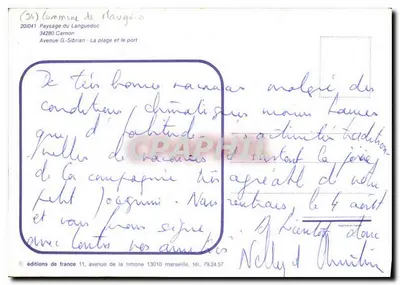 (34) Commune de Mauguio
20/041 Paysage du Languedoc
34280 Carnon
Avenue G.-Sibrian - La plage et le port
De très bonnes vacances malgré des
conditions climatiques moins bonnes
que d'habitude activités tradition
nelles de vacances et surtout la joie
de la compagnie très agréable d'un
petit Nous rentrons le 4 août
et vous
avec toutes nos amitiés
A bientôt donc
Nelly et Christian
CPARAMA
© éditions de france 11, avenue de la timone 13010 marseille, tél. 79.24.57